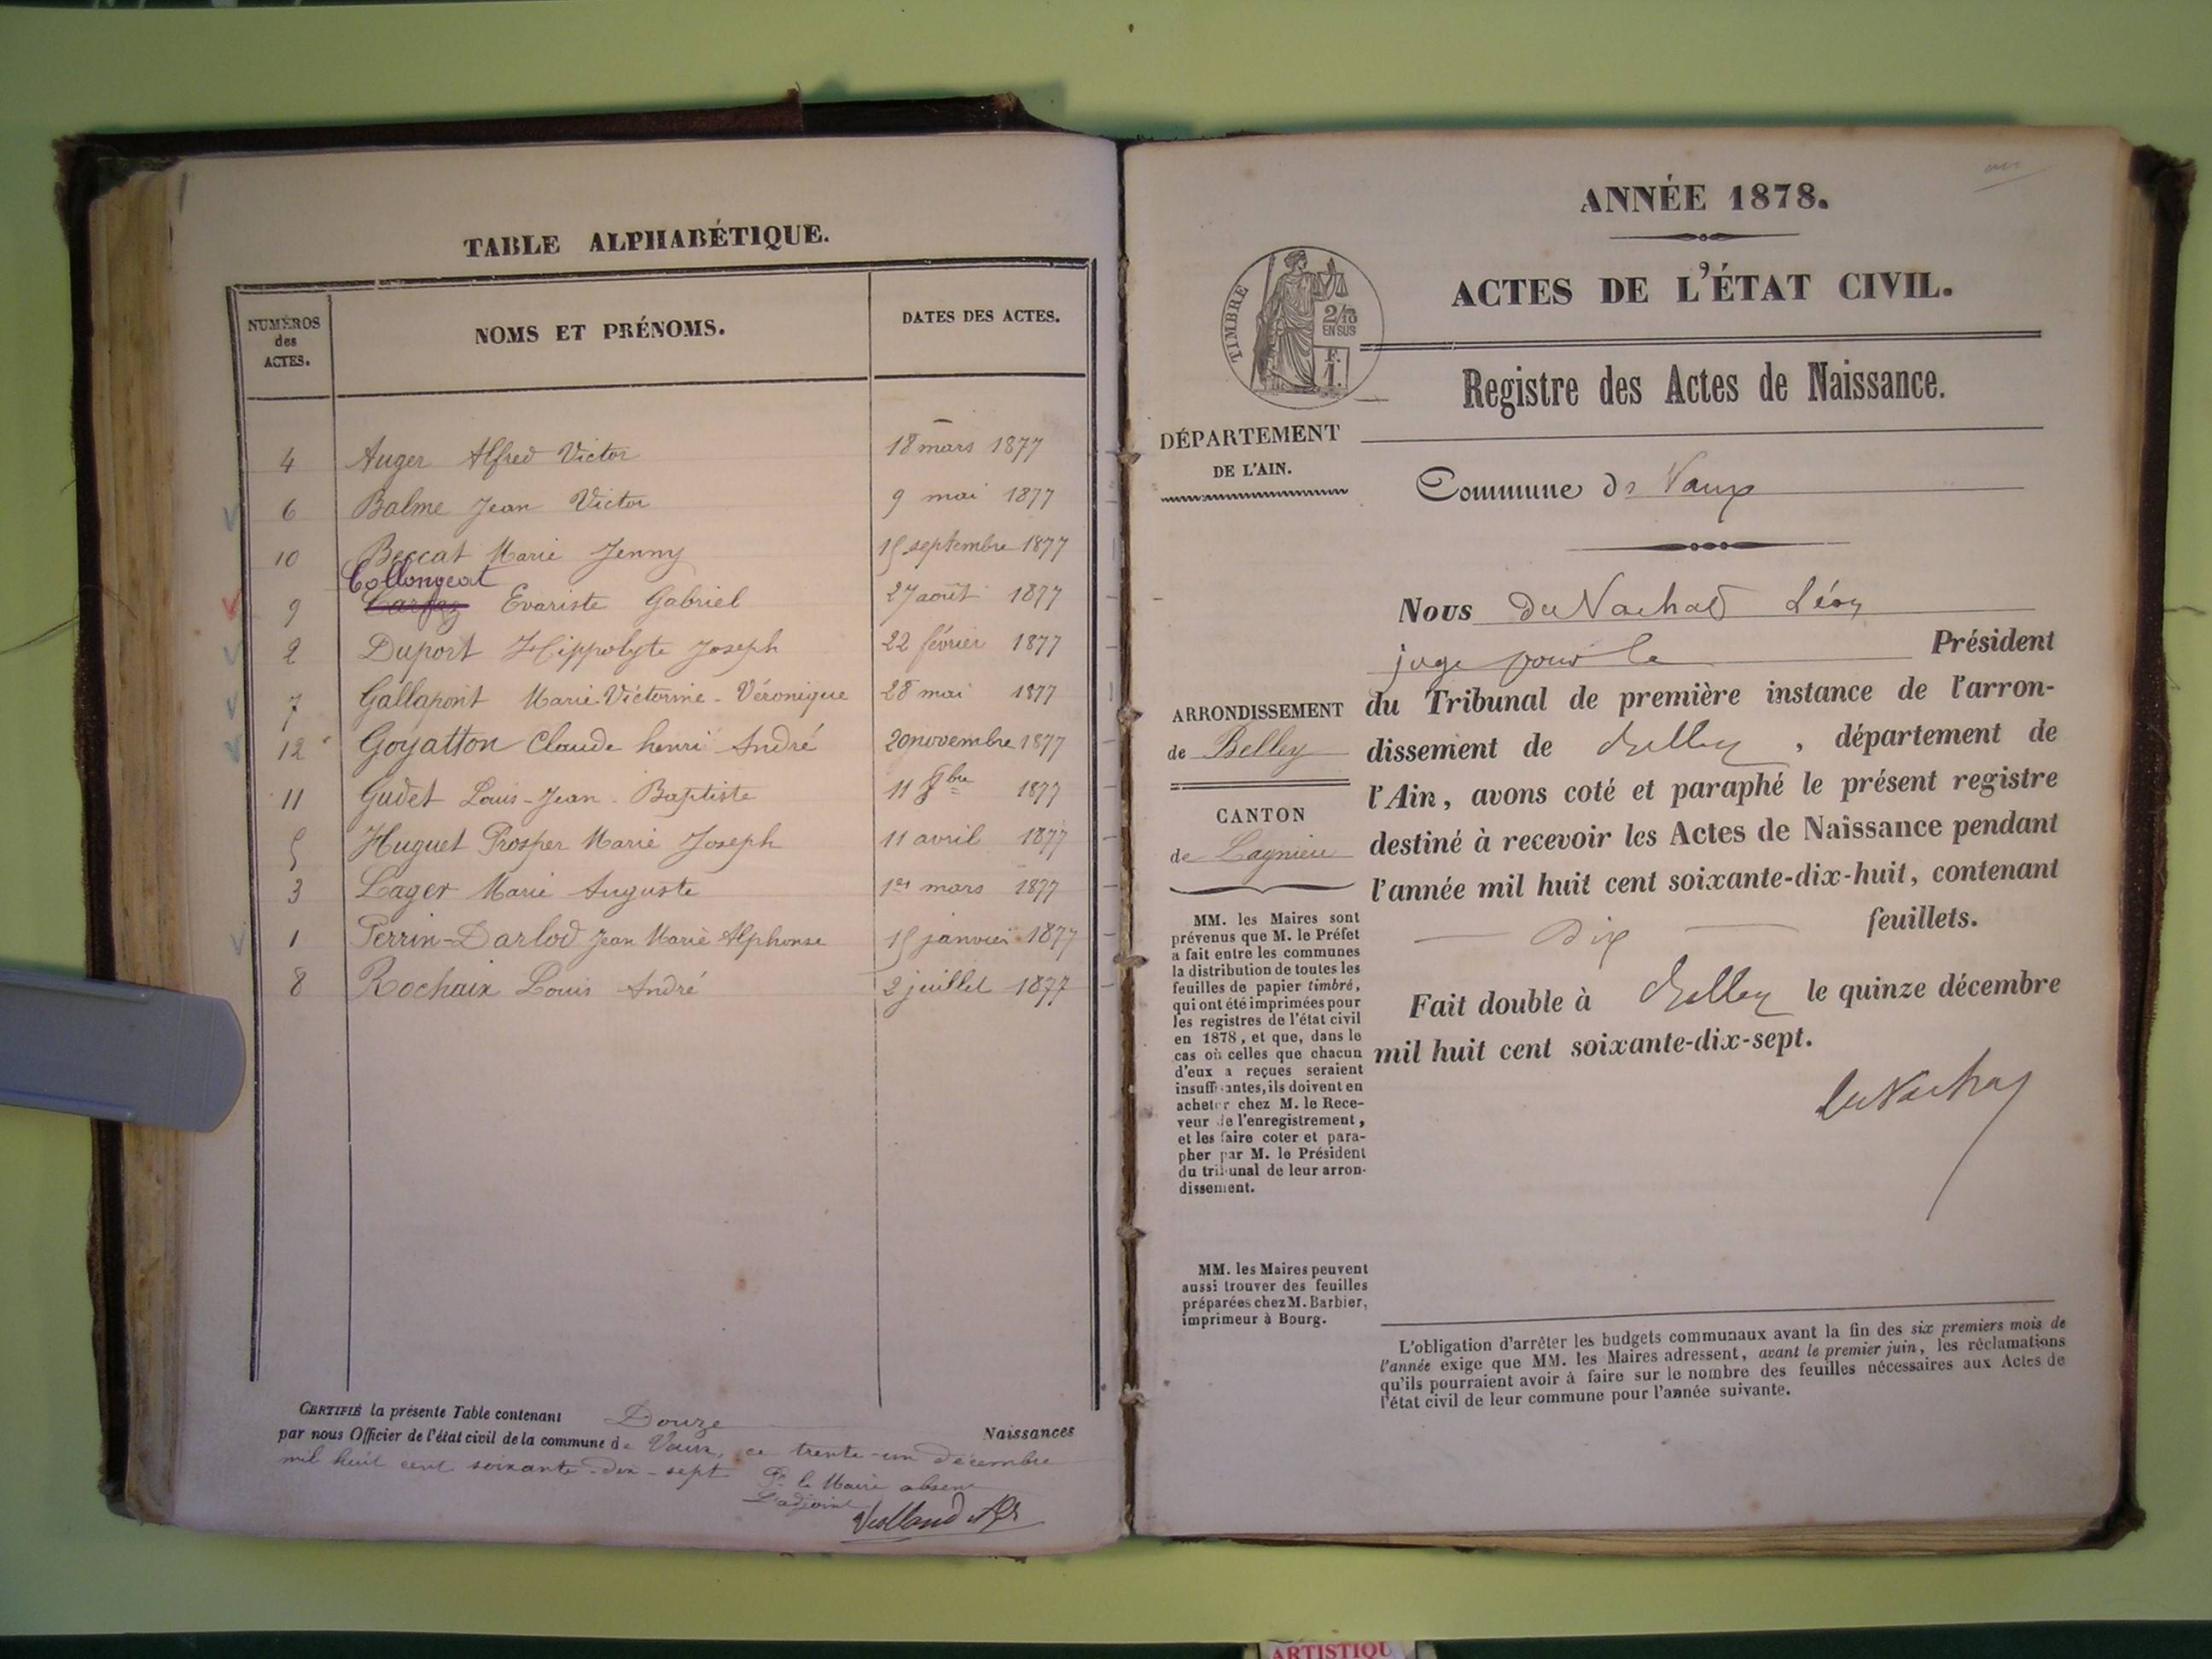 TABLE ALPHABÉTIQUE.
NUMÉROS des ACTES. NOMS ET PRÉNOMS. DATES DES ACTES.
4 Auger Alfred Victor 18 mars 1877
6 Balme Jean Victor 9 mai 1877
10 Beccat Marie Jenny 15 septembre 1877
Collongeat
9 Evariste Gabriel 27 août 1877
2 Duport Hippolyte Joseph 22 février 1877
7 Gallapont Marie Victorine - Véronique 28 mai 1877
12 Goyatton Claude henri André 20 novembre 1877
11 Gudet Louis - Jean - Baptiste 11 bre 1877
5 Huguet Prosper Marie Joseph 11 avril 1877
3 Lager Marie Auguste 1er mars 1877
1 Perrin-Darlod Jean Marie Alphonse 15 janvier 1877
8 Rochaix Louis André 2 juillet 1877
CERTIFIÉ la présente Table contenant Douze Naissances
par nous Officier de l'état civil de la commune de Vaux, ce trente-un décembre
mil huit cent soixante-dix-sept
Pr le Maire absent
L'adjoint
ANNÉE 1878.
ACTES DE L'ÉTAT CIVIL.
TIMBRE
2/10
EN SUS
F.
1.
Registre des Actes de Naissance.
DÉPARTEMENT
DE L'AIN.
Commune de Vaux
Nous du Nachad Léon
juge pour le Président
du Tribunal de première instance de l'arron-
dissement de Belley, département de
l'Ain, avons coté et paraphé le présent registre
destiné à recevoir les Actes de Naissance pendant
l'année mil huit cent soixante-dix-huit, contenant
dix feuillets.
Fait double à Belley le quinze décembre
mil huit cent soixante-dix-sept.
ARRONDISSEMENT
de Belley
CANTON
de Lagnieu
MM. les Maires sont
prévenus que M. le Préfet
a fait entre les communes
la distribution de toutes les
feuilles de papier timbré,
qui ont été imprimées pour
les registres de l'état civil
en 1878, et que, dans le
cas où celles que chacun
d'eux a reçues seraient
insuffisantes, ils doivent en
acheter chez M. le Rece-
veur de l'enregistrement,
et les faire coter et para-
pher par M. le Président
du tribunal de leur arron-
dissement.
MM. les Maires peuvent
aussi trouver des feuilles
préparées chez M. Barbier,
imprimeur à Bourg.
L'obligation d'arrêter les budgets communaux avant la fin des six premiers mois de
l'année exige que MM. les Maires adressent, avant le premier juin, les réclamations
qu'ils pourraient avoir à faire sur le nombre des feuilles nécessaires aux Actes de
l'état civil de leur commune pour l'année suivante.
ARTISTIQU